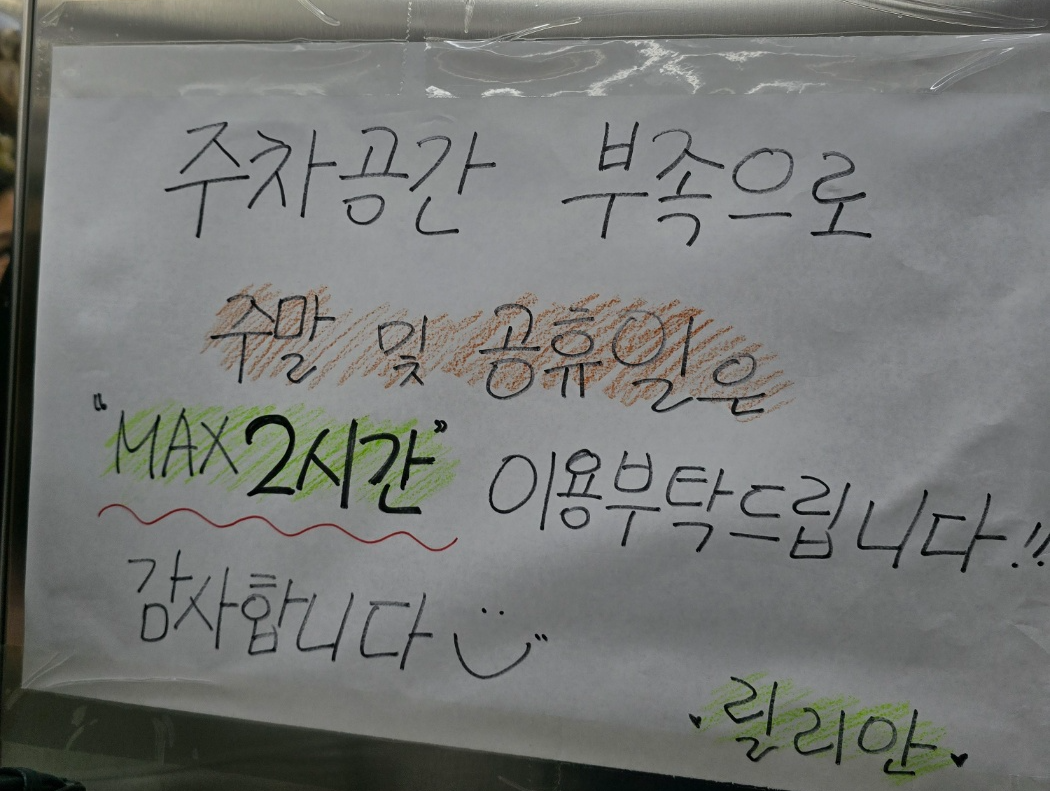 주차공간 부족으로
주말 및 공휴일은
"MAX 2시간" 이용부탁드립니다!!
감사합니다
릴리안